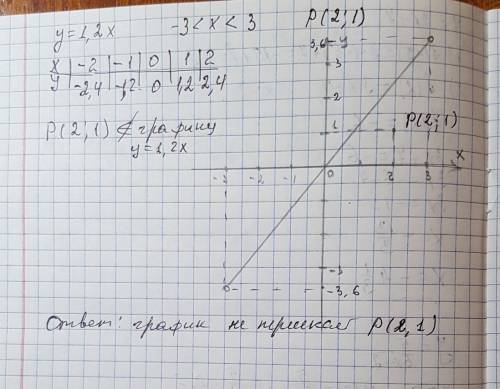 y=1,2x -3<x<3 P(2;1)
x | -2 | -1 | 0 | 1 | 2
y | -2,4 | -1,2 | 0 | 1,2 | 2,4
P(2;1) ∉ графику
y=1,2x
3,6 y
3
2
1 P(2;1)
-3 -2 -1 0 2 3 x
-3
-3,6
Ответ: график не P(2,1)